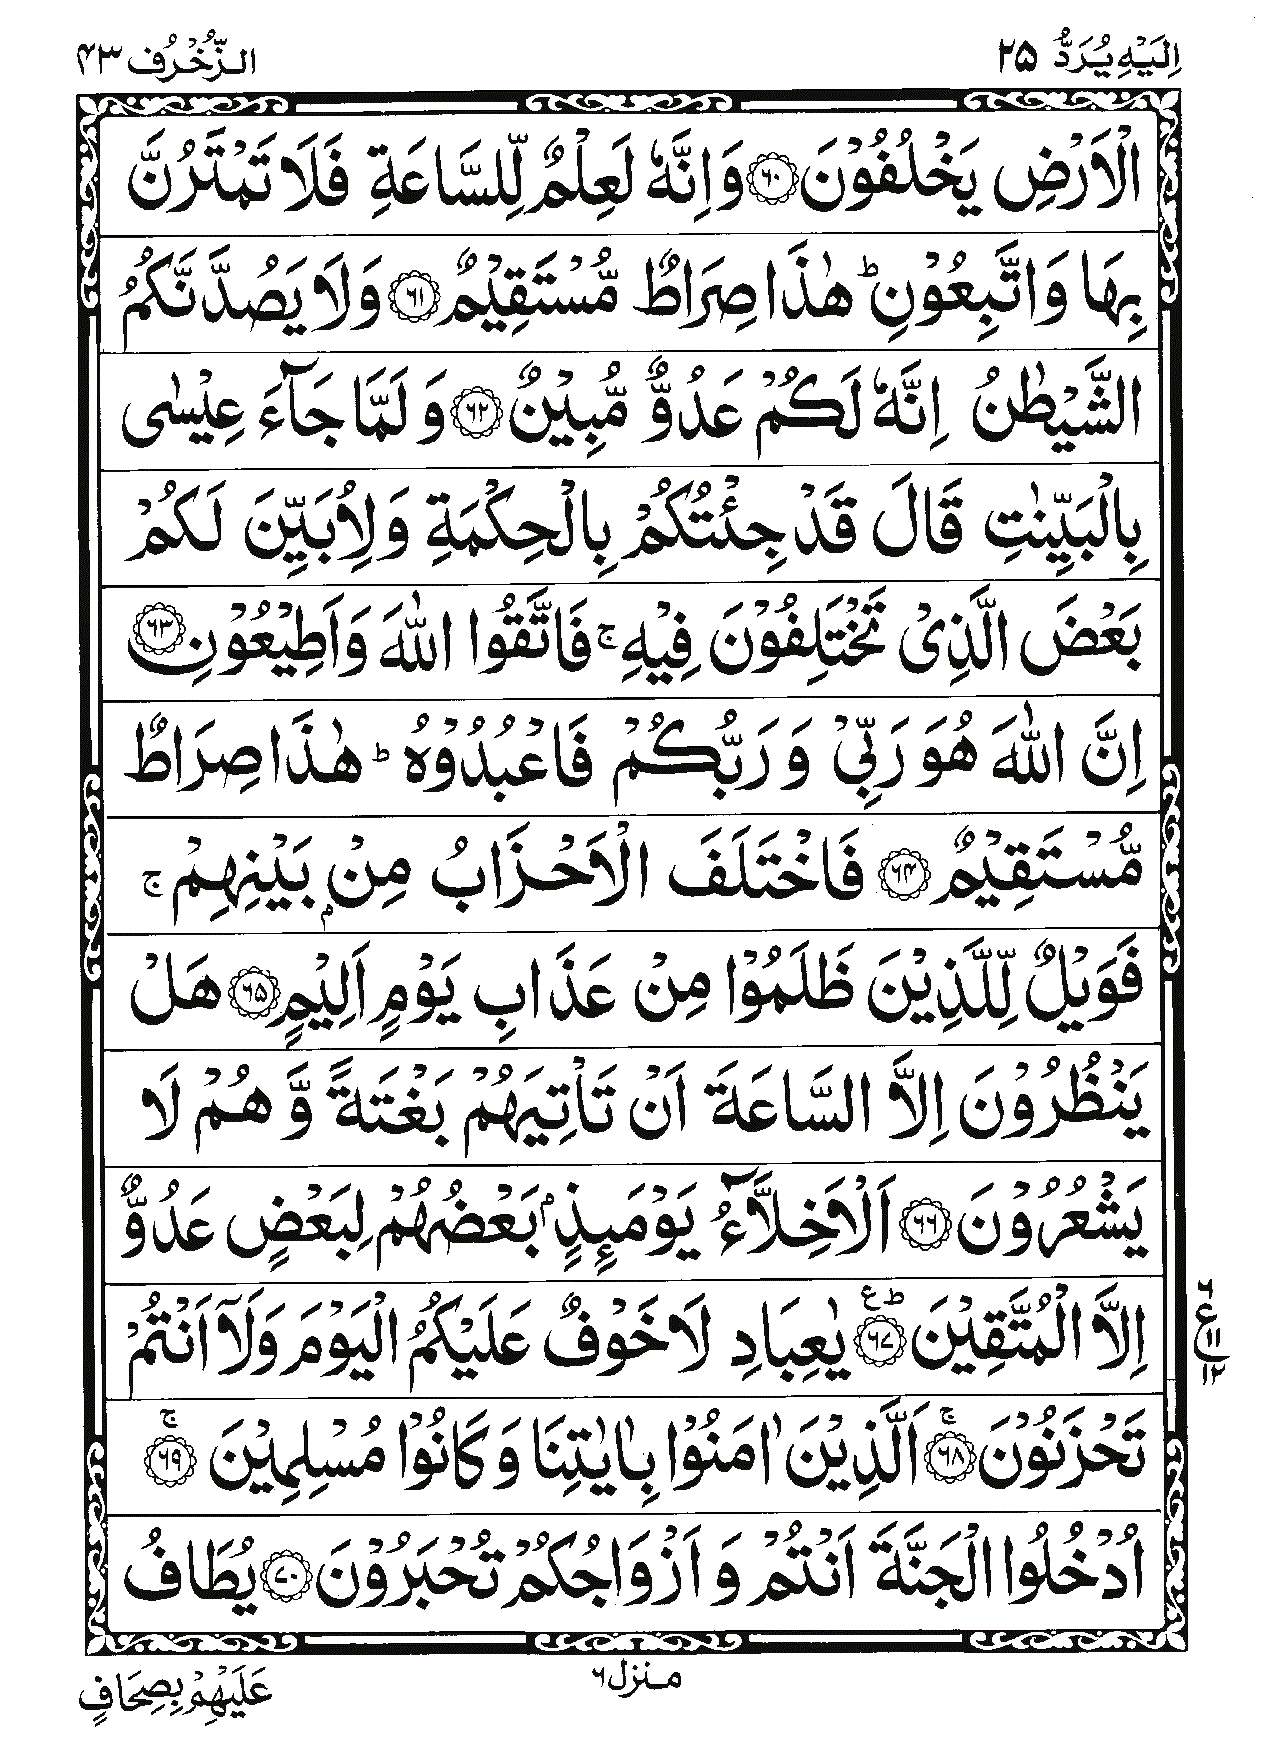 اِلَيْهِ يُرَدُّ ۲۵
الزُّخْرُف ۴۳
الْاَرْضِ يَخْلُفُوْنَ ﴿۶۰﴾ وَاِنَّهٗ لَعِلْمٌ لِّلسَّاعَةِ فَلَا تَمْتَرُنَّ
بِهَا وَاتَّبِعُوْنِ ؕ هٰذَا صِرَاطٌ مُّسْتَقِيْمٌ ﴿۶۱﴾ وَلَا يَصُدَّنَّكُمُ
الشَّيْطٰنُ اِنَّهٗ لَكُمْ عَدُوٌّ مُّبِيْنٌ ﴿۶۲﴾ وَ لَمَّا جَآءَ عِيْسٰى
بِالْبَيِّنٰتِ قَالَ قَدْ جِئْتُكُمْ بِالْحِكْمَةِ وَلِاُبَيِّنَ لَكُمْ
بَعْضَ الَّذِىْ تَخْتَلِفُوْنَ فِيْهِ ۚ فَاتَّقُوا اللّٰهَ وَاَطِيْعُوْنِ ﴿۶۳﴾
اِنَّ اللّٰهَ هُوَ رَبِّىْ وَ رَبُّكُمْ فَاعْبُدُوْهُ ؕ هٰذَا صِرَاطٌ
مُّسْتَقِيْمٌ ﴿۶۴﴾ فَاخْتَلَفَ الْاَحْزَابُ مِنْۢ بَيْنِهِمْ ۚ
فَوَيْلٌ لِّلَّذِيْنَ ظَلَمُوْا مِنْ عَذَابِ يَوْمٍ اَلِيْمٍ ﴿۶۵﴾ هَلْ
يَنْظُرُوْنَ اِلَّا السَّاعَةَ اَنْ تَاْتِيَهُمْ بَغْتَةً وَّ هُمْ لَا
يَشْعُرُوْنَ ﴿۶۶﴾ اَلْاَخِلَّآءُ يَوْمَئِذٍۭ بَعْضُهُمْ لِبَعْضٍ عَدُوٌّ
اِلَّا الْمُتَّقِيْنَ ؕ ع ﴿۶۷﴾ يٰعِبَادِ لَا خَوْفٌ عَلَيْكُمُ الْيَوْمَ وَلَآ اَنْتُمْ
۶ ع ۱۱ ۱۲
تَحْزَنُوْنَ ۚ ﴿۶۸﴾ اَلَّذِيْنَ اٰمَنُوْا بِاٰيٰتِنَا وَ كَانُوْا مُسْلِمِيْنَ ۚ ﴿۶۹﴾
اُدْخُلُوا الْجَنَّةَ اَنْتُمْ وَ اَزْوَاجُكُمْ تُحْبَرُوْنَ ﴿۷۰﴾ يُطَافُ
منزل ۶
عَلَيْهِمْ بِصِحَافٍ